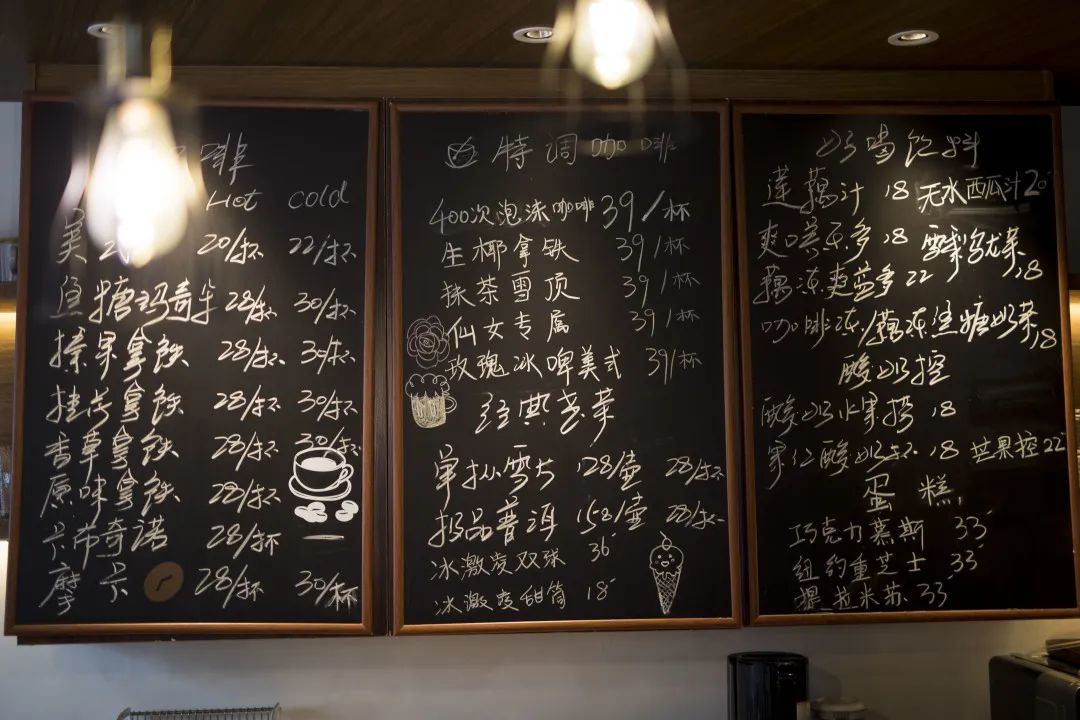 啡
Hot cold
美式 20/杯 22/杯
焦糖玛奇朵 28/杯 30/杯
榛果拿铁 28/杯 30/杯
桂花拿铁 28/杯 30/杯
香草拿铁 28/杯 30/杯
原味拿铁 28/杯
卡布奇诺 28/杯
摩卡 28/杯 30/杯
特调咖啡
400次泡沫咖啡 39/杯
生椰拿铁 39/杯
抹茶雪顶 39/杯
仙女专属 39/杯
玫瑰冰啤美式 39/杯
经典老茶
单枞雪片 128/壶 28/杯
极品普洱 158/壶 28/杯
冰激凌双球 36
冰激凌甜筒 18
好喝饮料
莲藕汁 18 无水西瓜汁 20
爽口益多 18 雪梨乌龙茶 18
藕冻爽益多 22
咖啡冻/藕冻焦糖奶茶 18
酸奶控
酸奶水果捞 18
果仁酸奶杯 18 芒果控 22
蛋糕
巧克力慕斯 33
纽约重芝士 33
提拉米苏 33